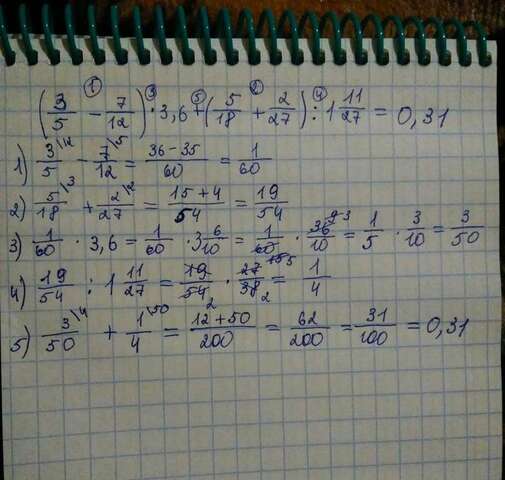 (3/5 - 7/12) · 3,6 + (5/18 + 2/27) : 1 11/27 = 0,31
1) 3/5 \12 - 7/12 \5 = (36-35)/60 = 1/60
2) 5/18 \3 + 2/27 \2 = (15+4)/54 = 19/54
3) 1/60 · 3,6 = 1/60 · 3 6/10 = 1/60 · 36/10 = 1/5 · 3/10 = 3/50
4) 19/54 : 1 11/27 = 19/54 · 27/38 = 1/4
5) 3/50 \4 + 1/4 \50 = (12+50)/200 = 62/200 = 31/100 = 0,31